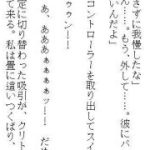 さずに我慢したな」
ん……。もう、外して……。彼にバ
いいんだよ」
コントローラーを取り出してスイ
ゥゥンーー
あ、ぁぁぁぁぁぁッーー　だめ
定に切り替わった吸引が、クリト
て来る。私は畳に這いつくばり、